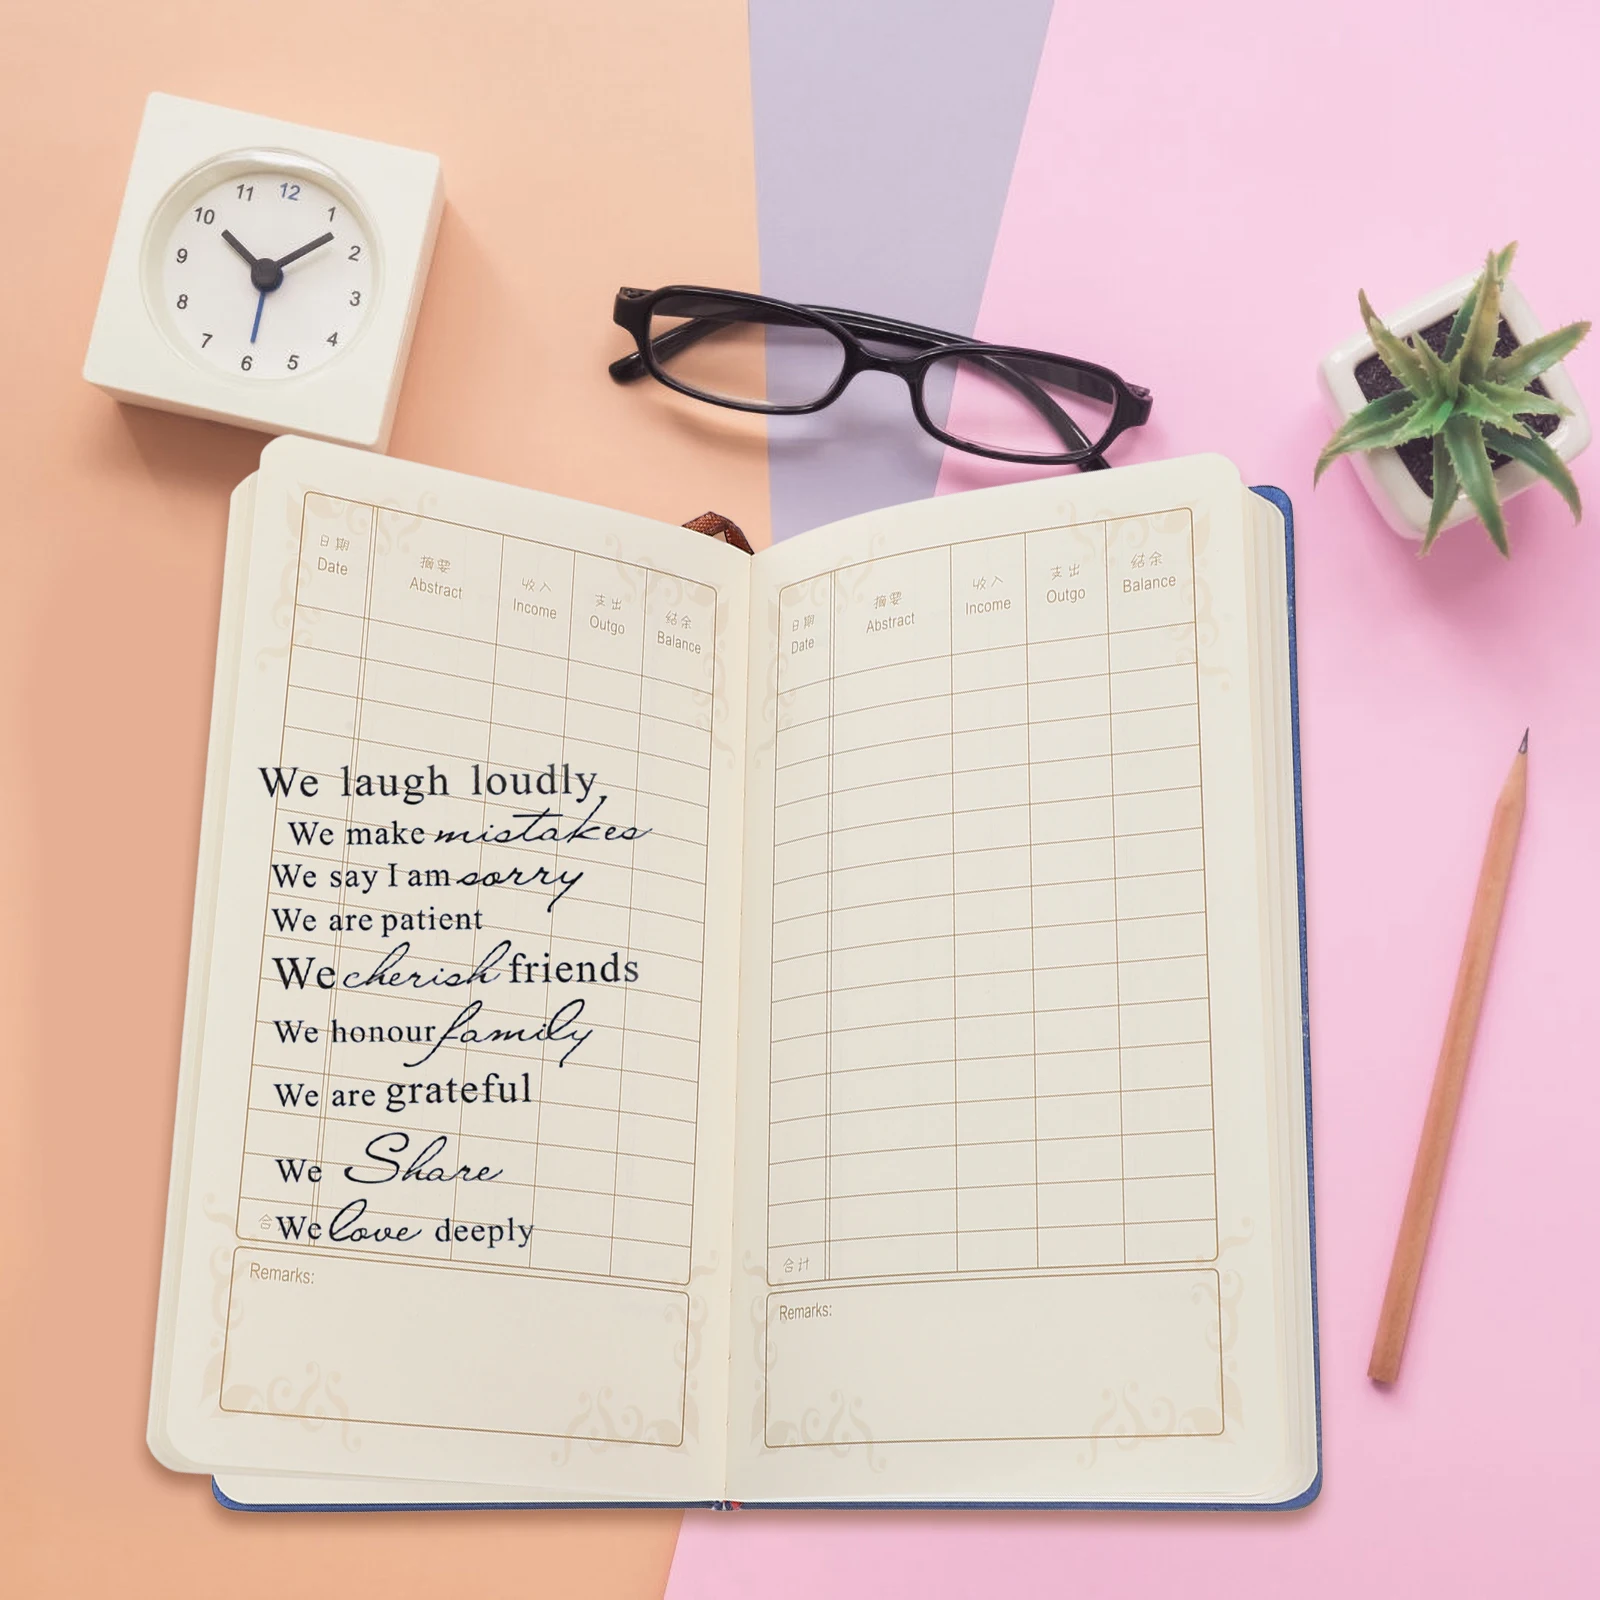 11 12 1
10 2
9 3
8 4
7 6 5
日期 摘要 收入 支出 结余
Date Abstract Income Outgo Balance
We laugh loudly,
We make mistakes
We say I am sorry
We are patient
We cherish friends
We honour family
We are grateful
We Share
合 We love deeply
Remarks:
日期 摘要 收入 支出 结余
Date Abstract Income Outgo Balance
合计
Remarks: